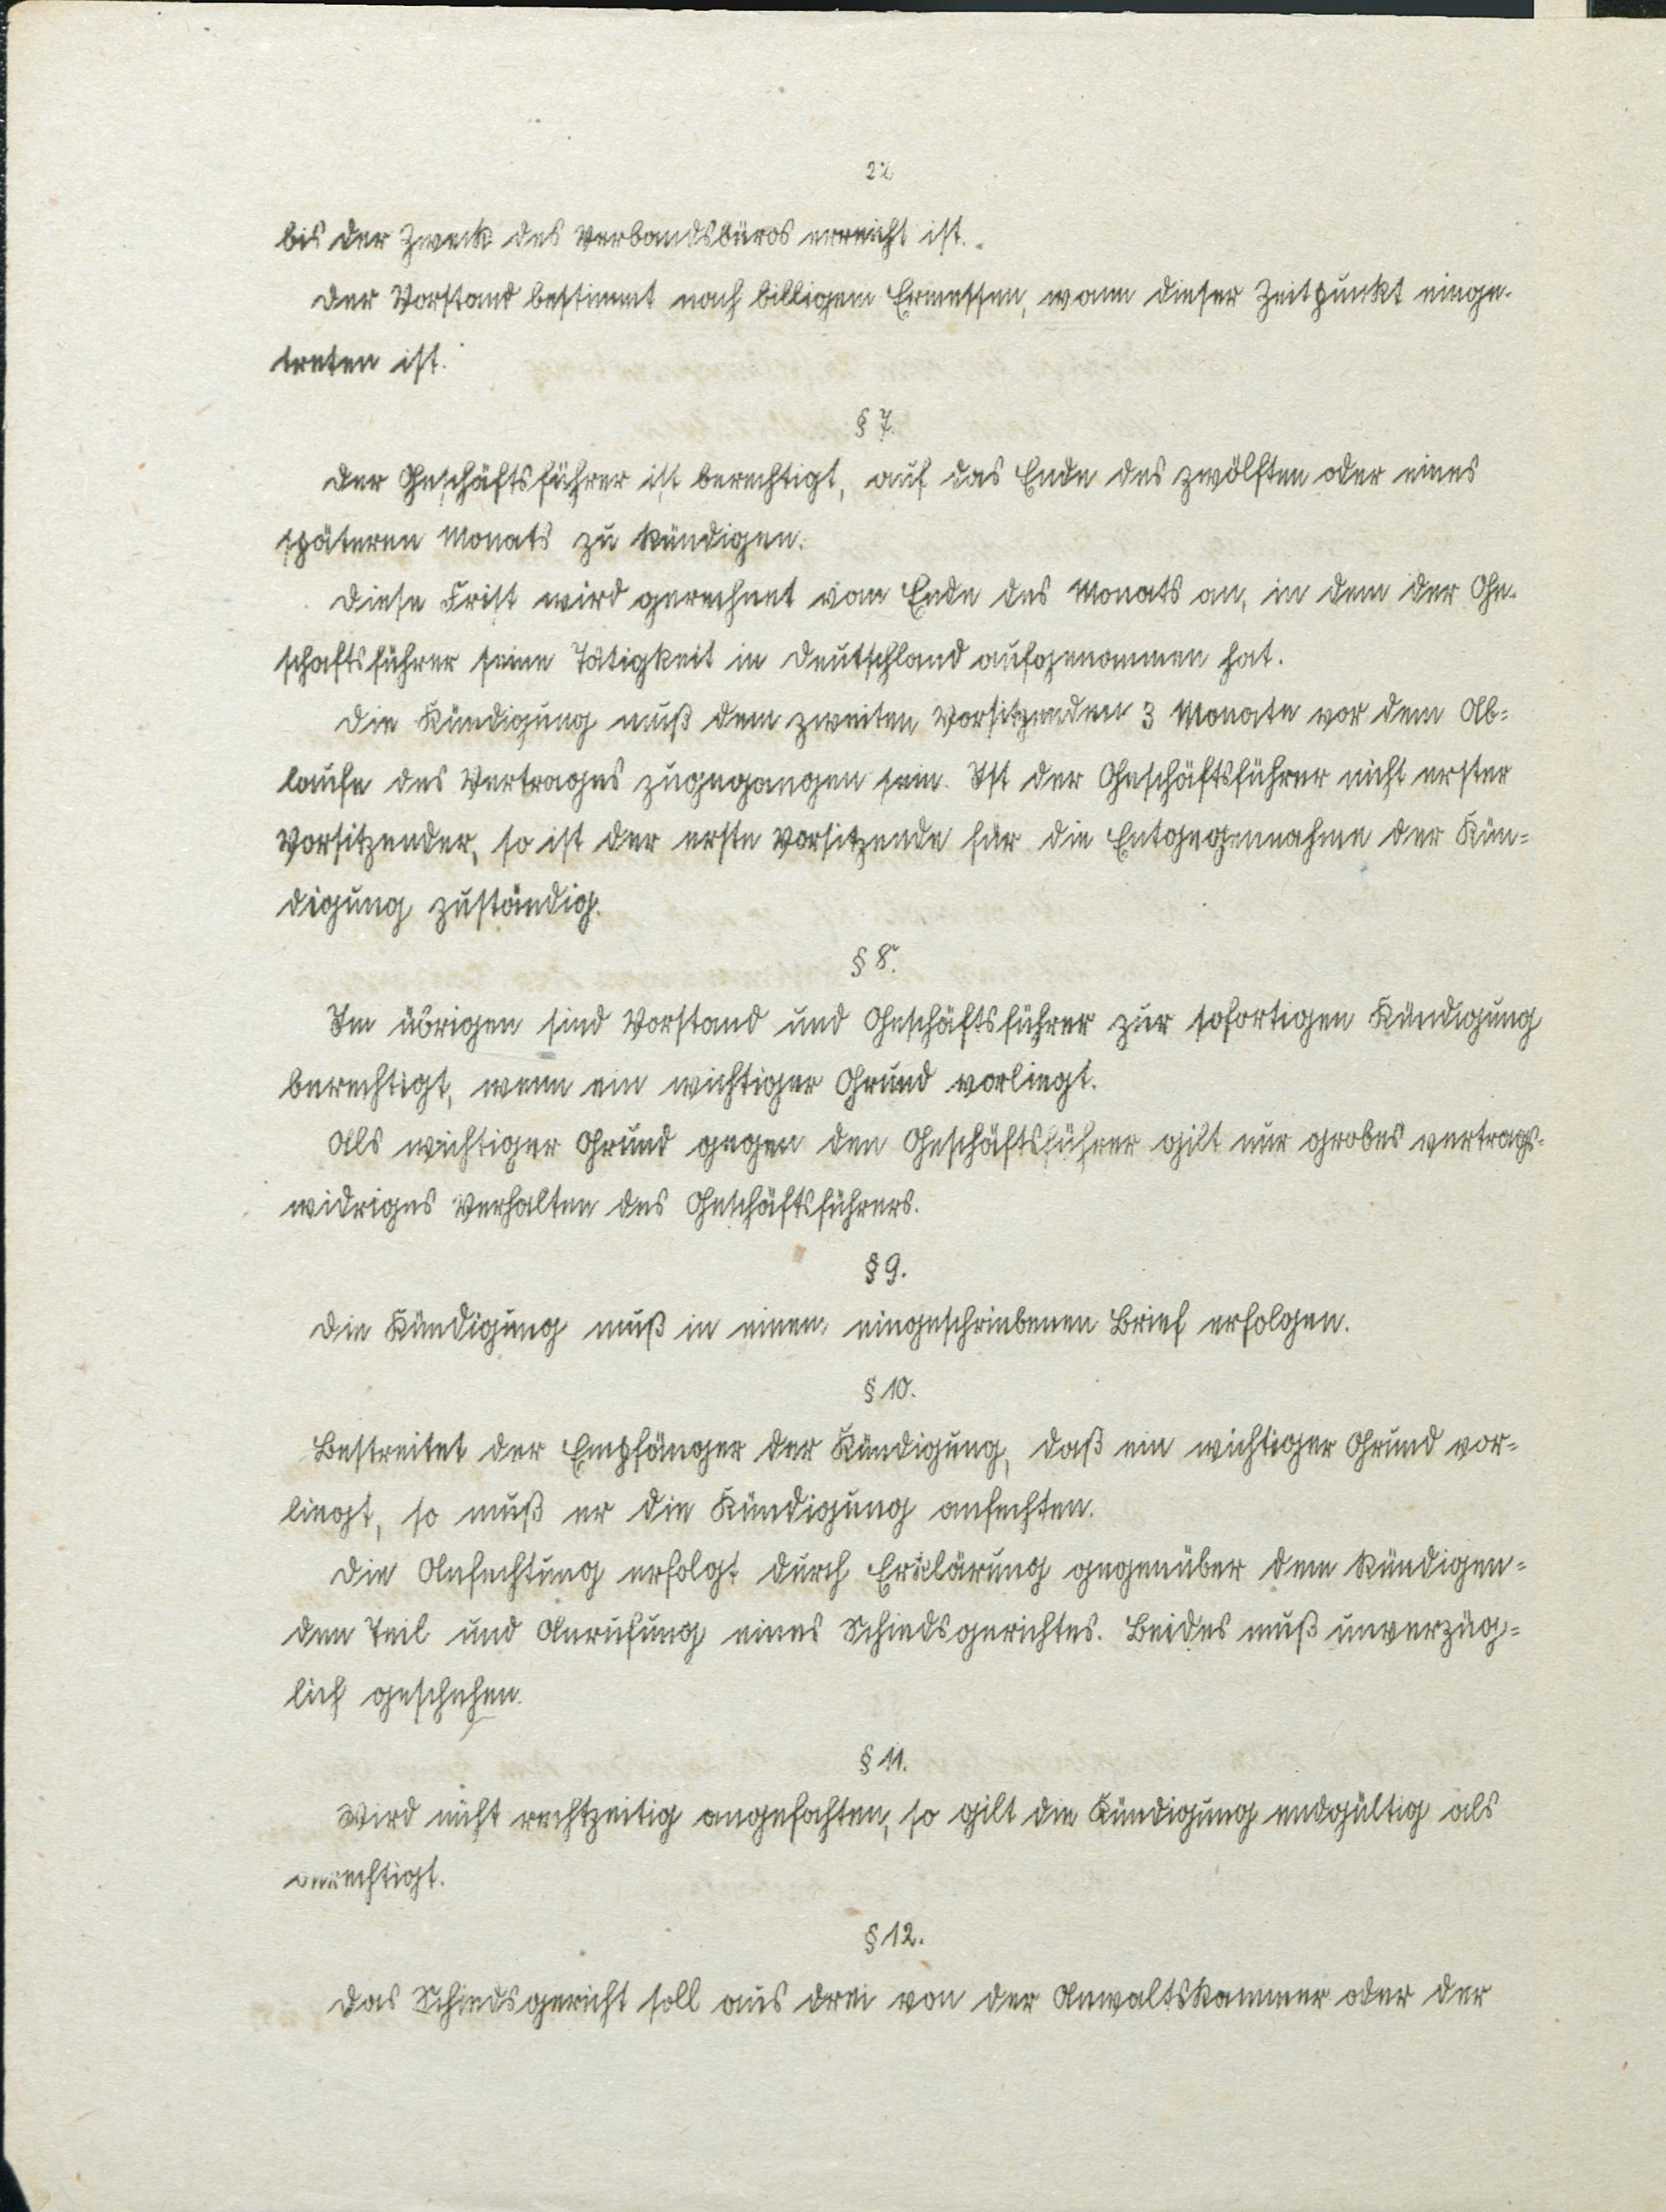 22
bis der Zweck des Verbandsbüros erreicht ist.
Der Vorstand bestimmt nach billigem Ermessen, wann dieser Zeitpunkt einge-
treten ist.
§ 7.
Der Geschäftsführer ist berechtigt, auf das Ende des zwölften oder eines
späteren Monats zu kündigen.
Diese Frist wird gerechnet vom Ende des Monats an, in dem der Ge-
schaftsführer seine Tätigkeit in Deutschland aufgenommen hat.
Die Kündigung muß dem zweiten Vorsitzenden 3 Monate vor dem Ab=
laufe des Vertrages zugegangen sein. Ist der Geschäftsführer nicht erster
Vorsitzender, so ist der erste Vorsitzende für die Entgegennahme der Kün=
digung zuständig.
§ 8.
Im übrigen sind Vorstand und Geschäftsführer zur sofortigen Kündigung
berechtigt, wenn ein wichtiger Grund vorliegt.
Als wichtiger Grund gegen den Geschäftsführer gilt nur grobes vertrags=
widriges Verhalten des Geschäftsführers.
§ 9.
Die Kündigung muß in einem eingeschriebenen Brief erfolgen.
§ 10.
Bestreitet der Empfänger der Kündigung, daß ein wichtiger Grund vor=
liegt, so muß er die Kündigung anfechten.
Die Anfechtung erfolgt durch Erklärung gegenüber dem kündigen=
den Teil und Anrufung eines Schiedsgerichtes. Beides muß unverzüg=
lich geschehen.
§ 11.
Wird nicht rechtzeitig angefochten, so gilt die Kündigung endgültig als
berechtigt.
§ 12.
Das Schiedsgericht soll aus drei von der Anwaltskammer oder der